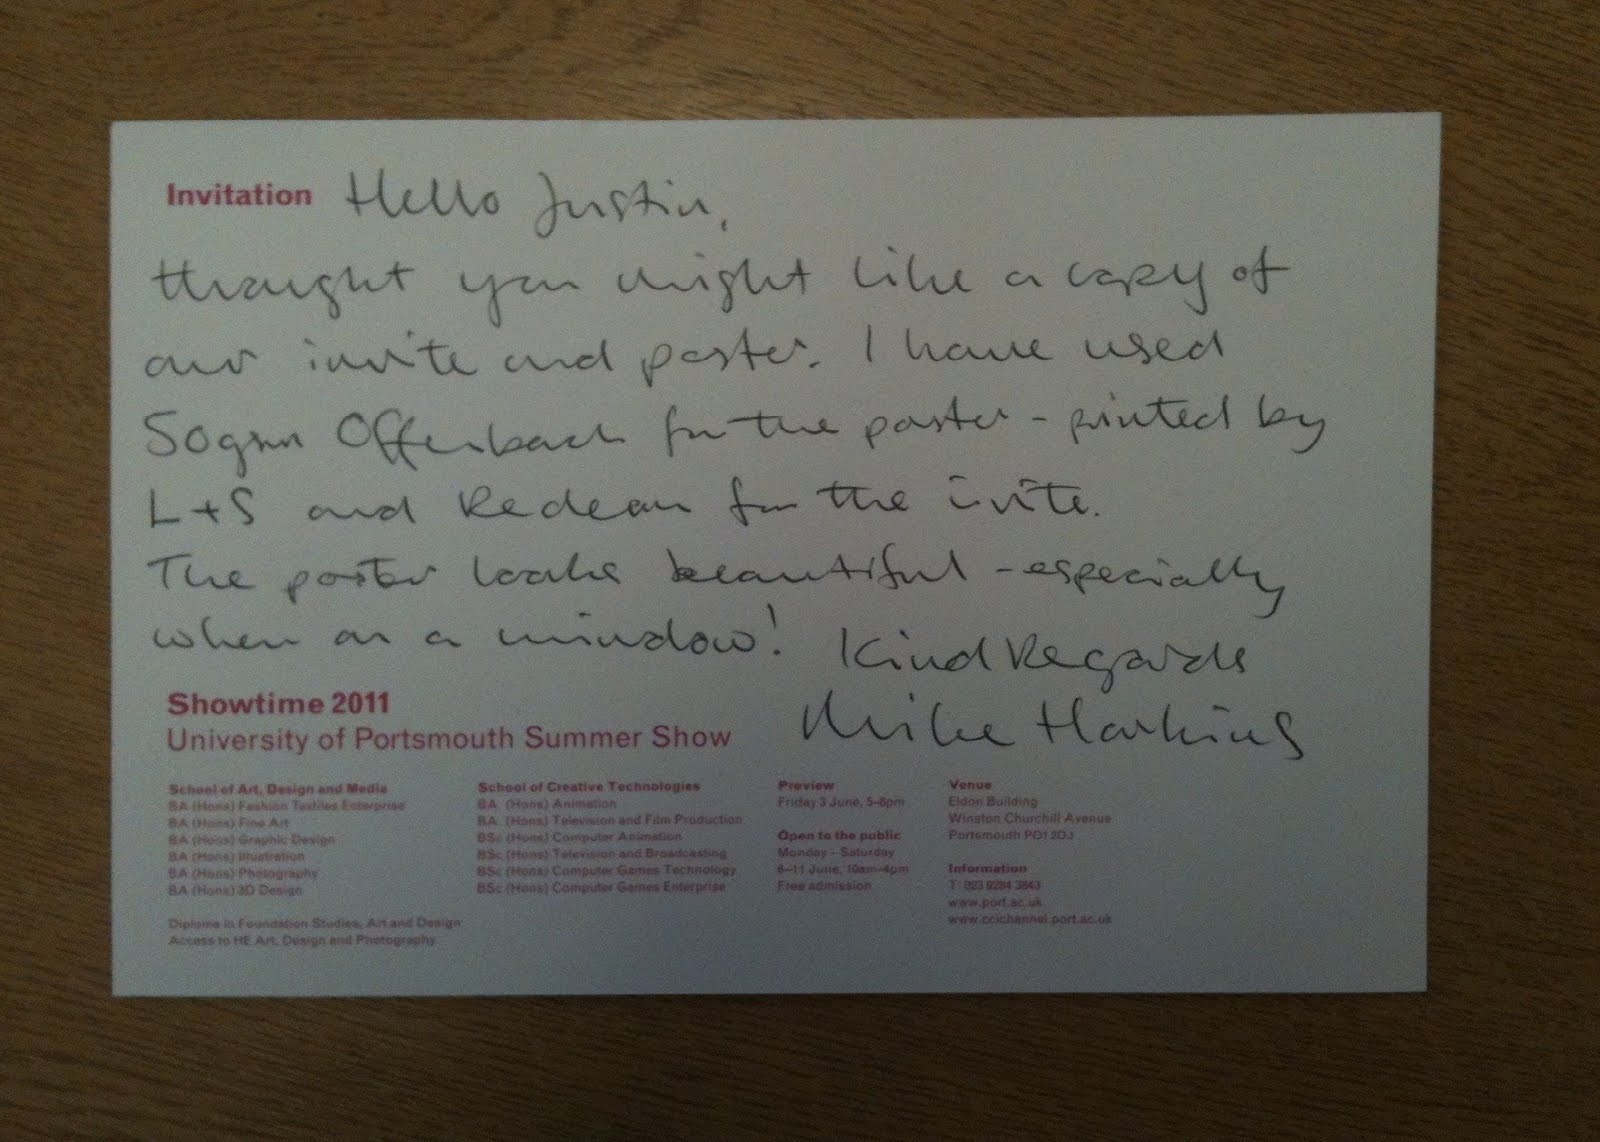 Invitation Hello Justin,
thought you might like a copy of
our invite and poster. I have used
50gsm Offenbach for the poster - printed by
L+S and Redean for the invite.
The poster looks beautiful - especially
when on a window! Kind Regards
Mike Harkins
Showtime 2011
University of Portsmouth Summer Show
School of Art, Design and Media
BA (Hons) Fashion Textiles Enterprise
BA (Hons) Fine Art
BA (Hons) Graphic Design
BA (Hons) Illustration
BA (Hons) Photography
BA (Hons) 3D Design
Diploma in Foundation Studies, Art and Design
Access to HE Art, Design and Photography
School of Creative Technologies
BA (Hons) Animation
BA (Hons) Television and Film Production
BSc (Hons) Computer Animation
BSc (Hons) Television and Broadcasting
BSc (Hons) Computer Games Technology
BSc (Hons) Computer Games Enterprise
Preview
Friday 3 June, 5–8pm
Open to the public
Monday – Saturday
6–11 June, 10am–4pm
Free admission
Venue
Eldon Building
Winston Churchill Avenue
Portsmouth PO1 2DJ
Information
T: 023 9284 3843
www.port.ac.uk
www.ccichannel.port.ac.uk